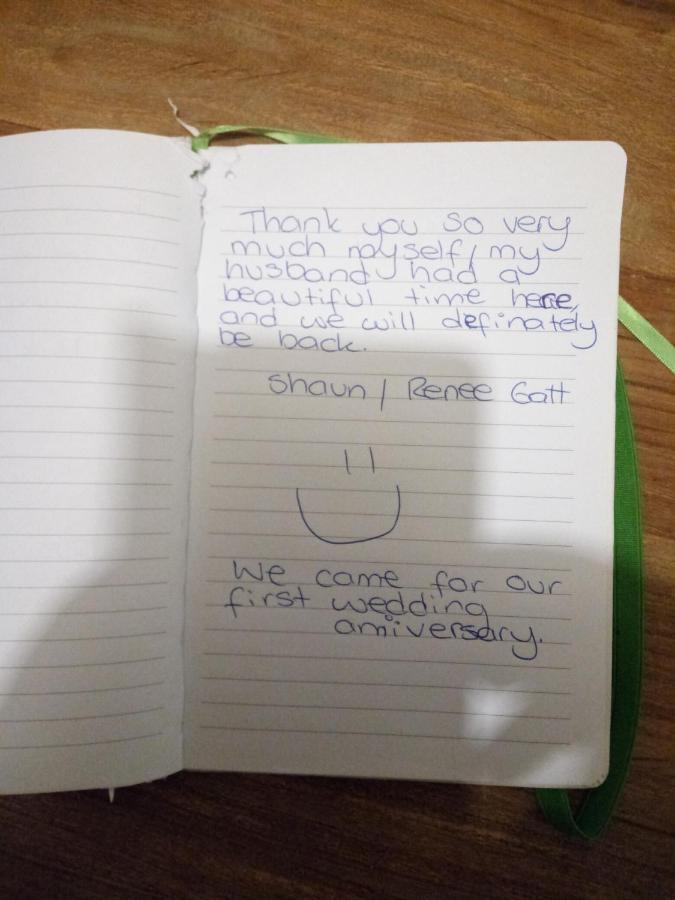 Thank you so very
much myself / my
husband had a
beautiful time here,
and we will definately
be back.
Shaun / Renee Gatt
We came for our
first wedding
anniversary.